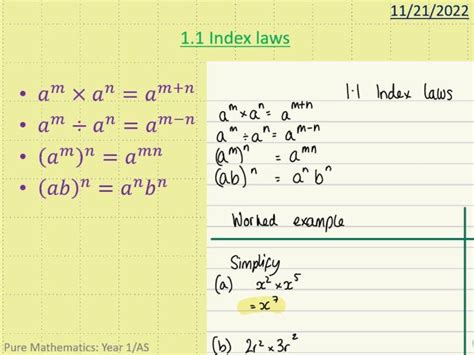 11/21/2022
1.1 Index laws
• aᵐ × aⁿ = aᵐ⁺ⁿ
• aᵐ ÷ aⁿ = aᵐ⁻ⁿ
• (aᵐ)ⁿ = aᵐⁿ
• (ab)ⁿ = aⁿbⁿ
1.1 Index laws
aᵐ × aⁿ = aᵐ⁺ⁿ
aᵐ ÷ aⁿ = aᵐ⁻ⁿ
(aᵐ)ⁿ = aᵐⁿ
(ab)ⁿ = aⁿbⁿ
Worked example
Simplify
(a) x² × x⁵
= x⁷
(b) 2r² × 3r²
Pure Mathematics: Year 1/AS